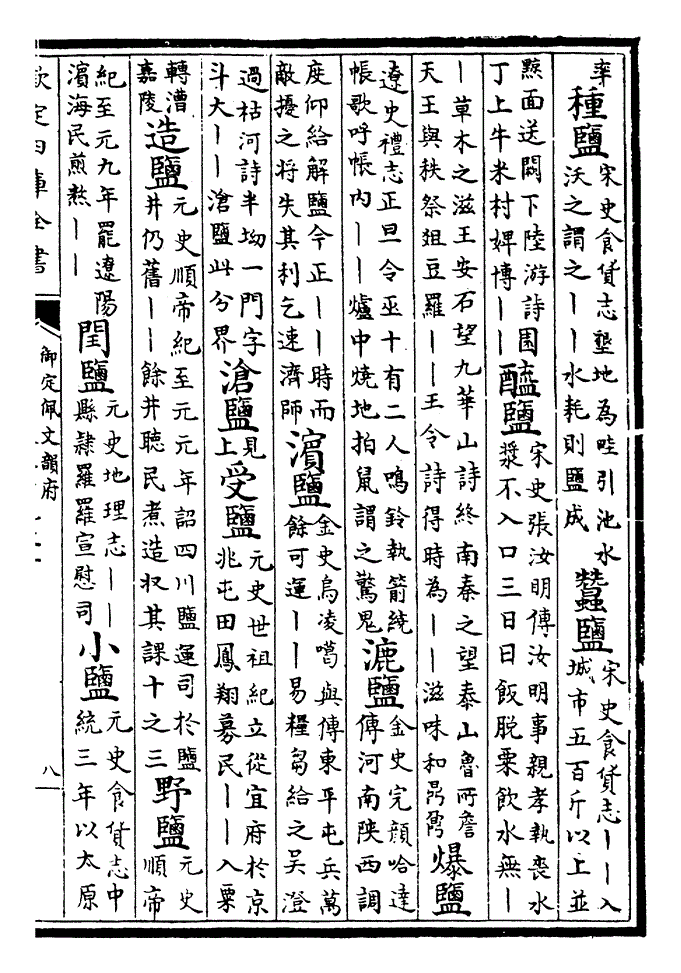 率
種鹽
宋史食貨志墾地為畦引池水
沃之謂之——水耗則鹽成
蠶鹽
宋史食貨志——入
城市五百斤以上並
黥面送闕下陸游詩園
丁上牛米村婢博——
醯鹽
宋史張汝明傳汝明事親孝執喪水
漿不入口三日日飯脫粟飲水無—
—草木之滋王安石望九華山詩終南秦之望泰山魯所詹
天王與秩祭俎豆羅——王令詩得時為——滋味和鼎鼐
爆鹽
遼史禮志正旦令巫十有二人鳴鈴執箭繞
帳歌呼帳內——爐中燒地拍鼠謂之驚鬼
漉鹽
金史完顏哈達
傳河南陝西調
度仰給解鹽今正——時而
敵擾之將失其利乞速濟師
濱鹽
金史烏凌噶與傳東平屯兵萬
餘可運——易糧芻給之吳澄
過枯河詩半坳一門字
斗大——滄鹽此分界
滄鹽
見
上
受鹽
元史世祖紀立從宜府於京
兆屯田鳳翔募民——入粟
轉漕
嘉陵
造鹽
元史順帝紀至元元年詔四川鹽運司於鹽
井仍舊——餘井聽民煮造收其課十之三
野鹽
元史
順帝
紀至元九年罷遼陽
濱海民煎熬——
閏鹽
元史地理志——
縣隸羅羅宣慰司
小鹽
元史食貨志中
統三年以太原
欽定四庫全書
御定佩文韻府
八